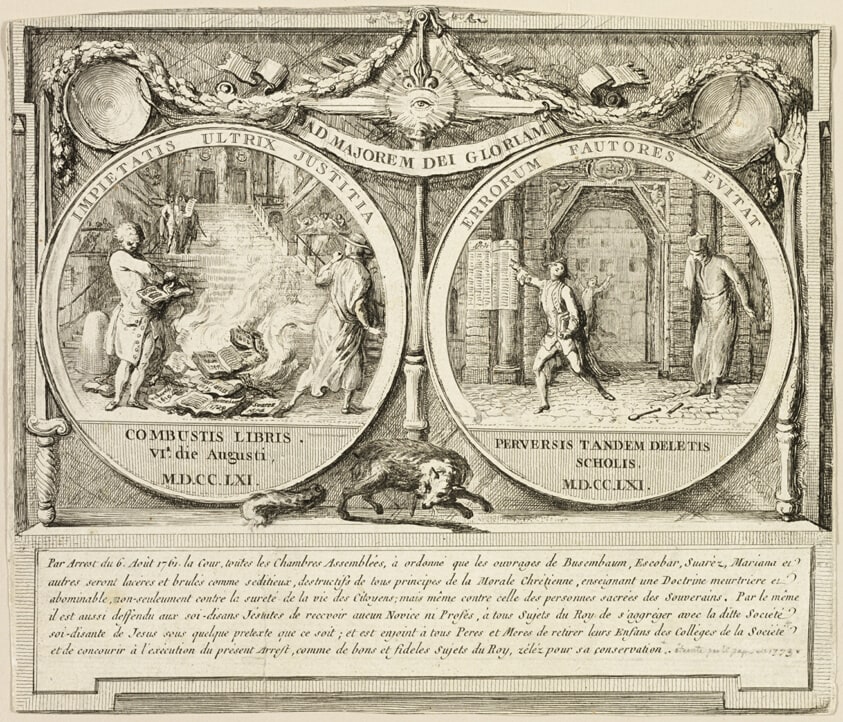 AD MAJOREM DEI GLORIAM
IMPIETATIS ULTRIX JUSTITIA
COMBUSTIS LIBRIS.
VIª. die Augusti,
M.D.CC.LXI.
ERRORUM FAUTORES EVITAT
PERVERSIS TANDEM DELETIS
SCHOLIS.
M.D.CC.LXI.
Par Arrest du 6. Août 1761. la Cour, toutes les Chambres Assemblées, à ordonné que les ouvrages de Busembaum, Escobar, Suarèz, Mariana et
autres seront lacérés et brulés comme seditieux, destructifs de tous principes de la Morale Chrétienne, enseignant une Doctrine meurtriere et
abominable, non-seulement contre la sureté de la vie des Citoyens; mais même contre celle des personnes sacrées des Souverains. Par le même
il est aussi deffendu aux soi-disans Jesuites de recevoir aucun Novice ni Profés, à tous Sujets du Roy de s'aggréger avec la ditte Société
soi-disante de Jesus sous quelque pretexte que ce soit; et est enjoint à tous Peres et Meres de retirer leurs Enfans des Colleges de la Societé
et de concourir à l'exécution du présent Arrest, comme de bons et fideles Sujets du Roy, zélèz pour sa conservation. 1773.